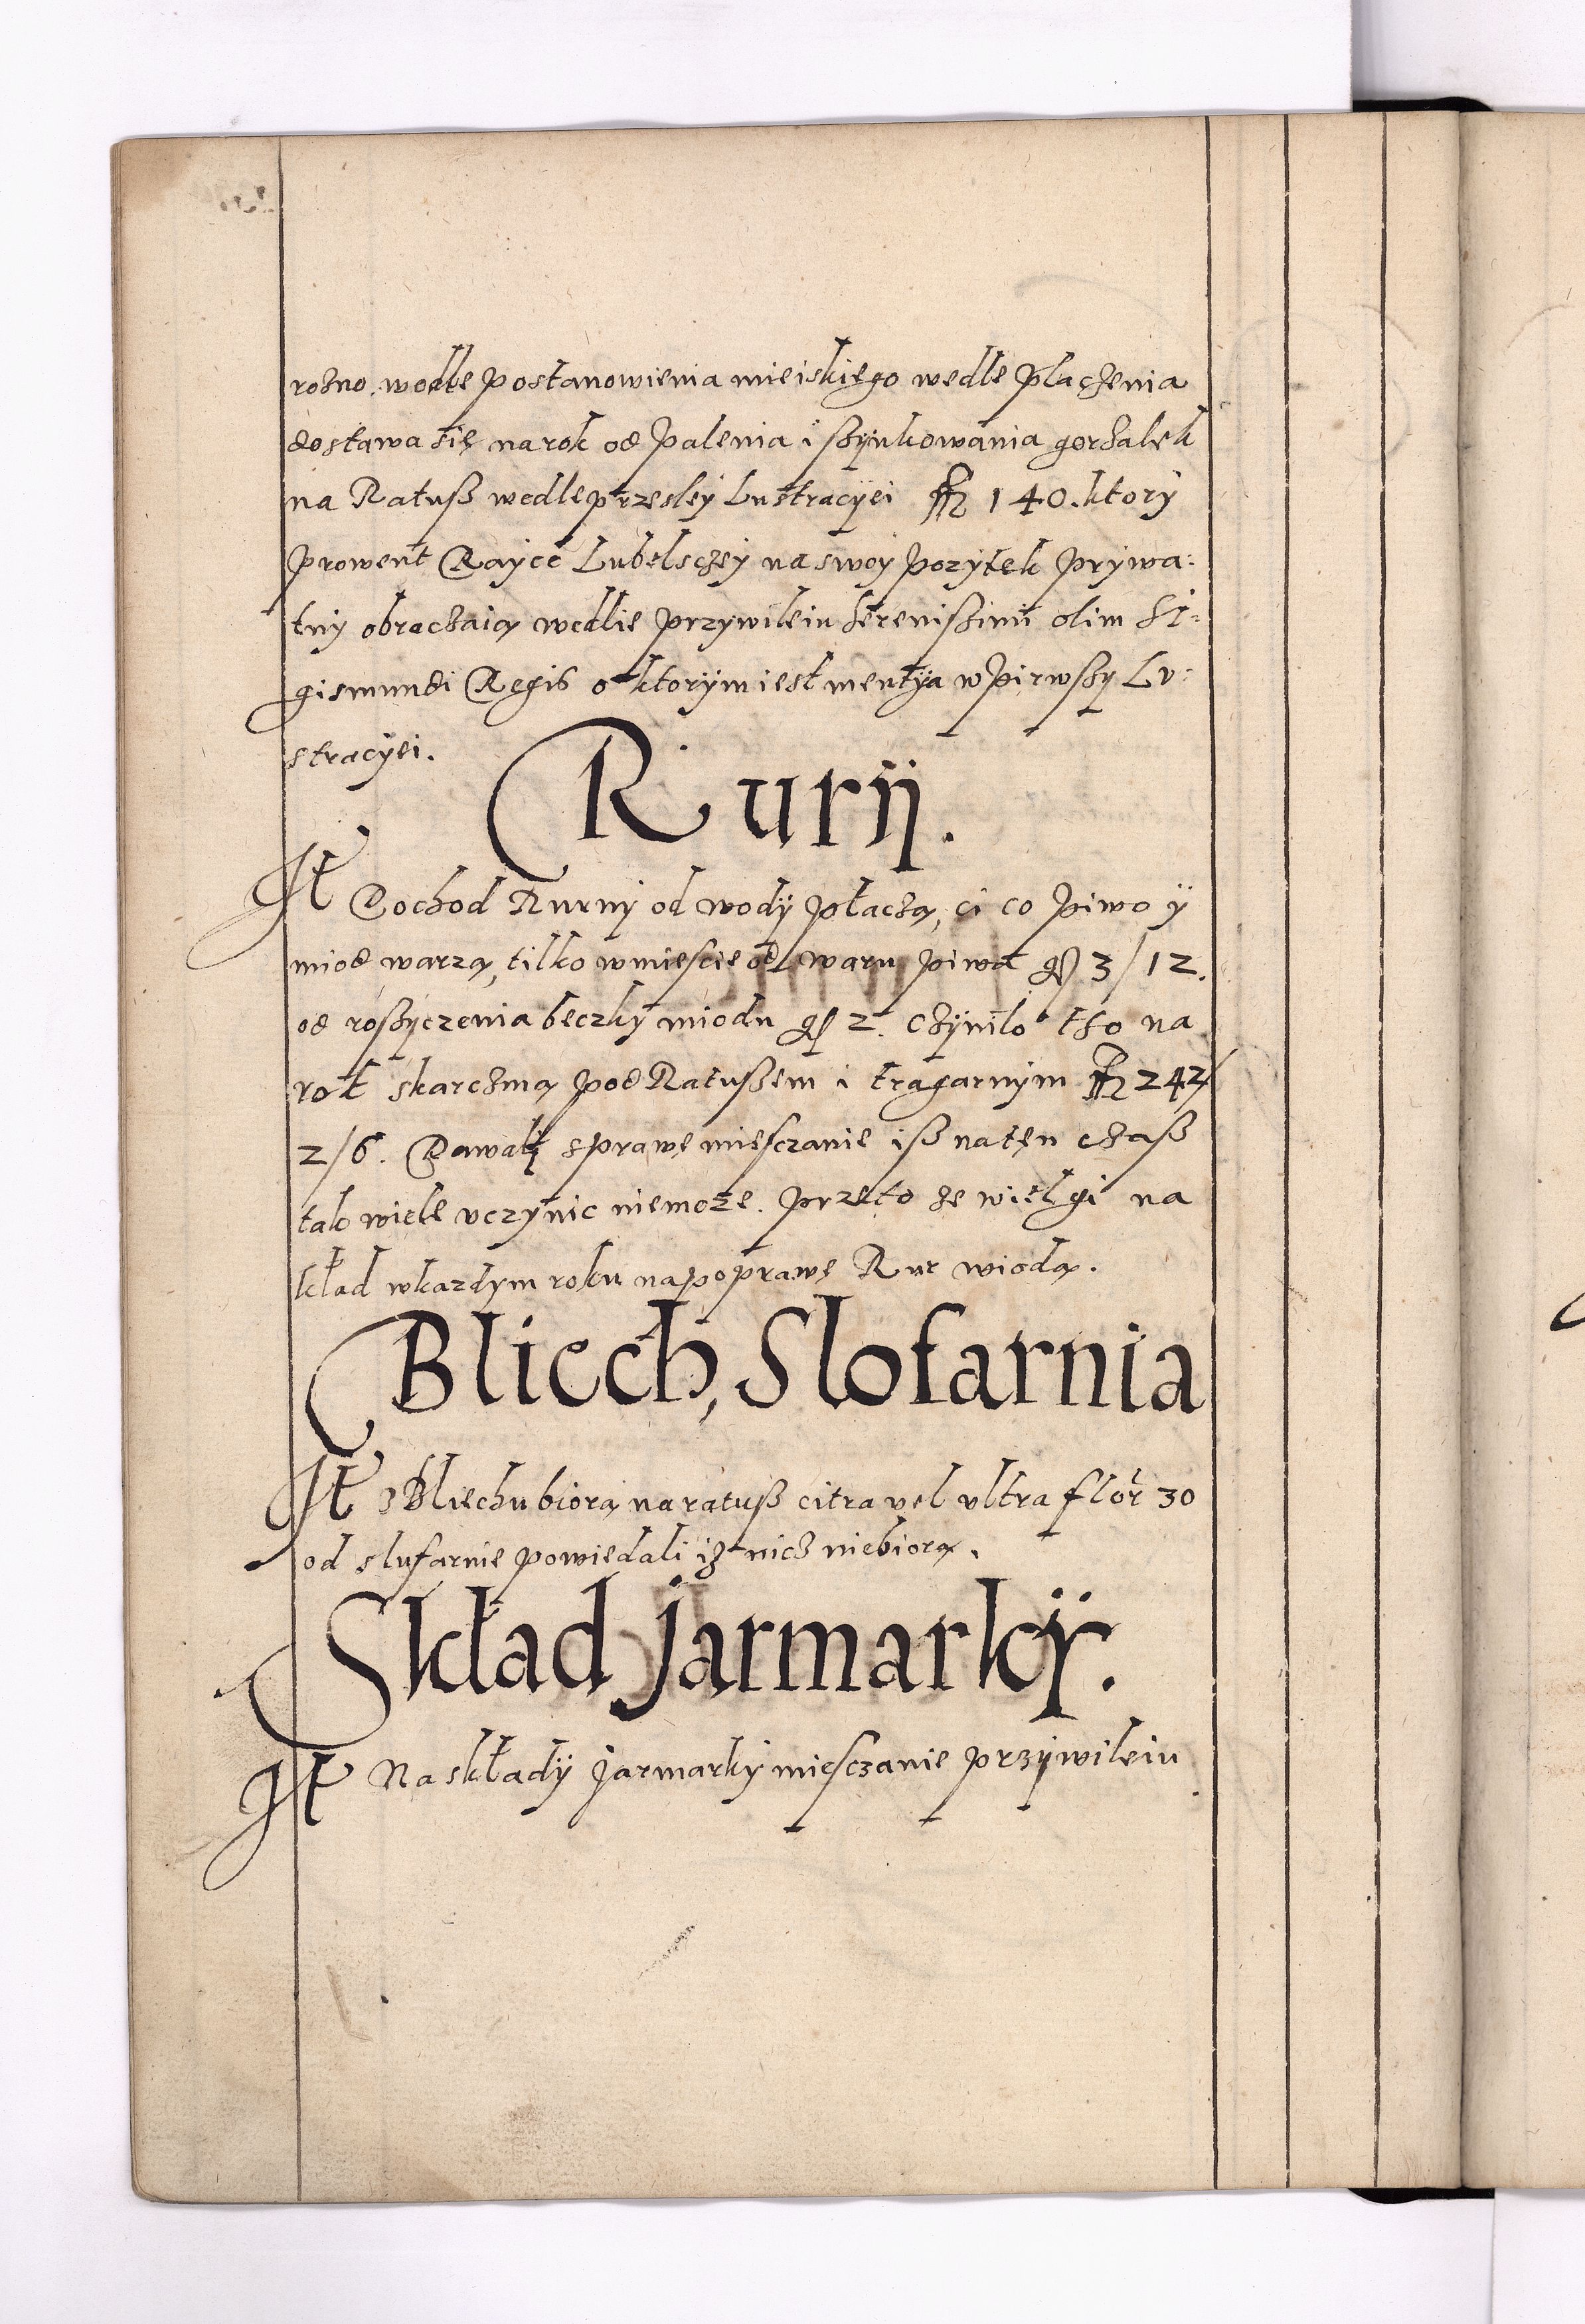 rozno. wodle postanowienia mieiskiego wedle płaczenia
dostawa się na rok od palenia i szynkowania gorzałek
na Ratuß wedle przesłey Lustracyei fl 140. ktory
prowent Rayce Lubelsczey na swoy pozytek prywa:
tny obraczaią wedlie przywileiu Serenißimi olim Si:
gismundi Regis o ktorym iest mentya w pirwszy Lu:
stracyei.
Rurij.
It Dochod Rurny od wody płaczą, ci co piwo ÿ
miod warzą, tilko w miescie od waru piwa gr 3/12.
od roszyczenia beczky miodu gr 2. czyniło tho na
rok skarczmą pod Ratußem i tragarnym fl 242/
2/6. Dawali sprawę miesczanie iß na ten czaß
tak wiele uczynic niemoze. przeto ze wielgi na
kład w kazdym roku na poprawę Rur wiodą.
Bliech, Slofarnia
It z Bliechu biorą na ratuß citra vel ultra flor 30
od slufarnie powiedali iz nicz niebiorą.
Skład jarmarkÿ.
It Na składÿ jarmarky miesczanie przÿwileiu